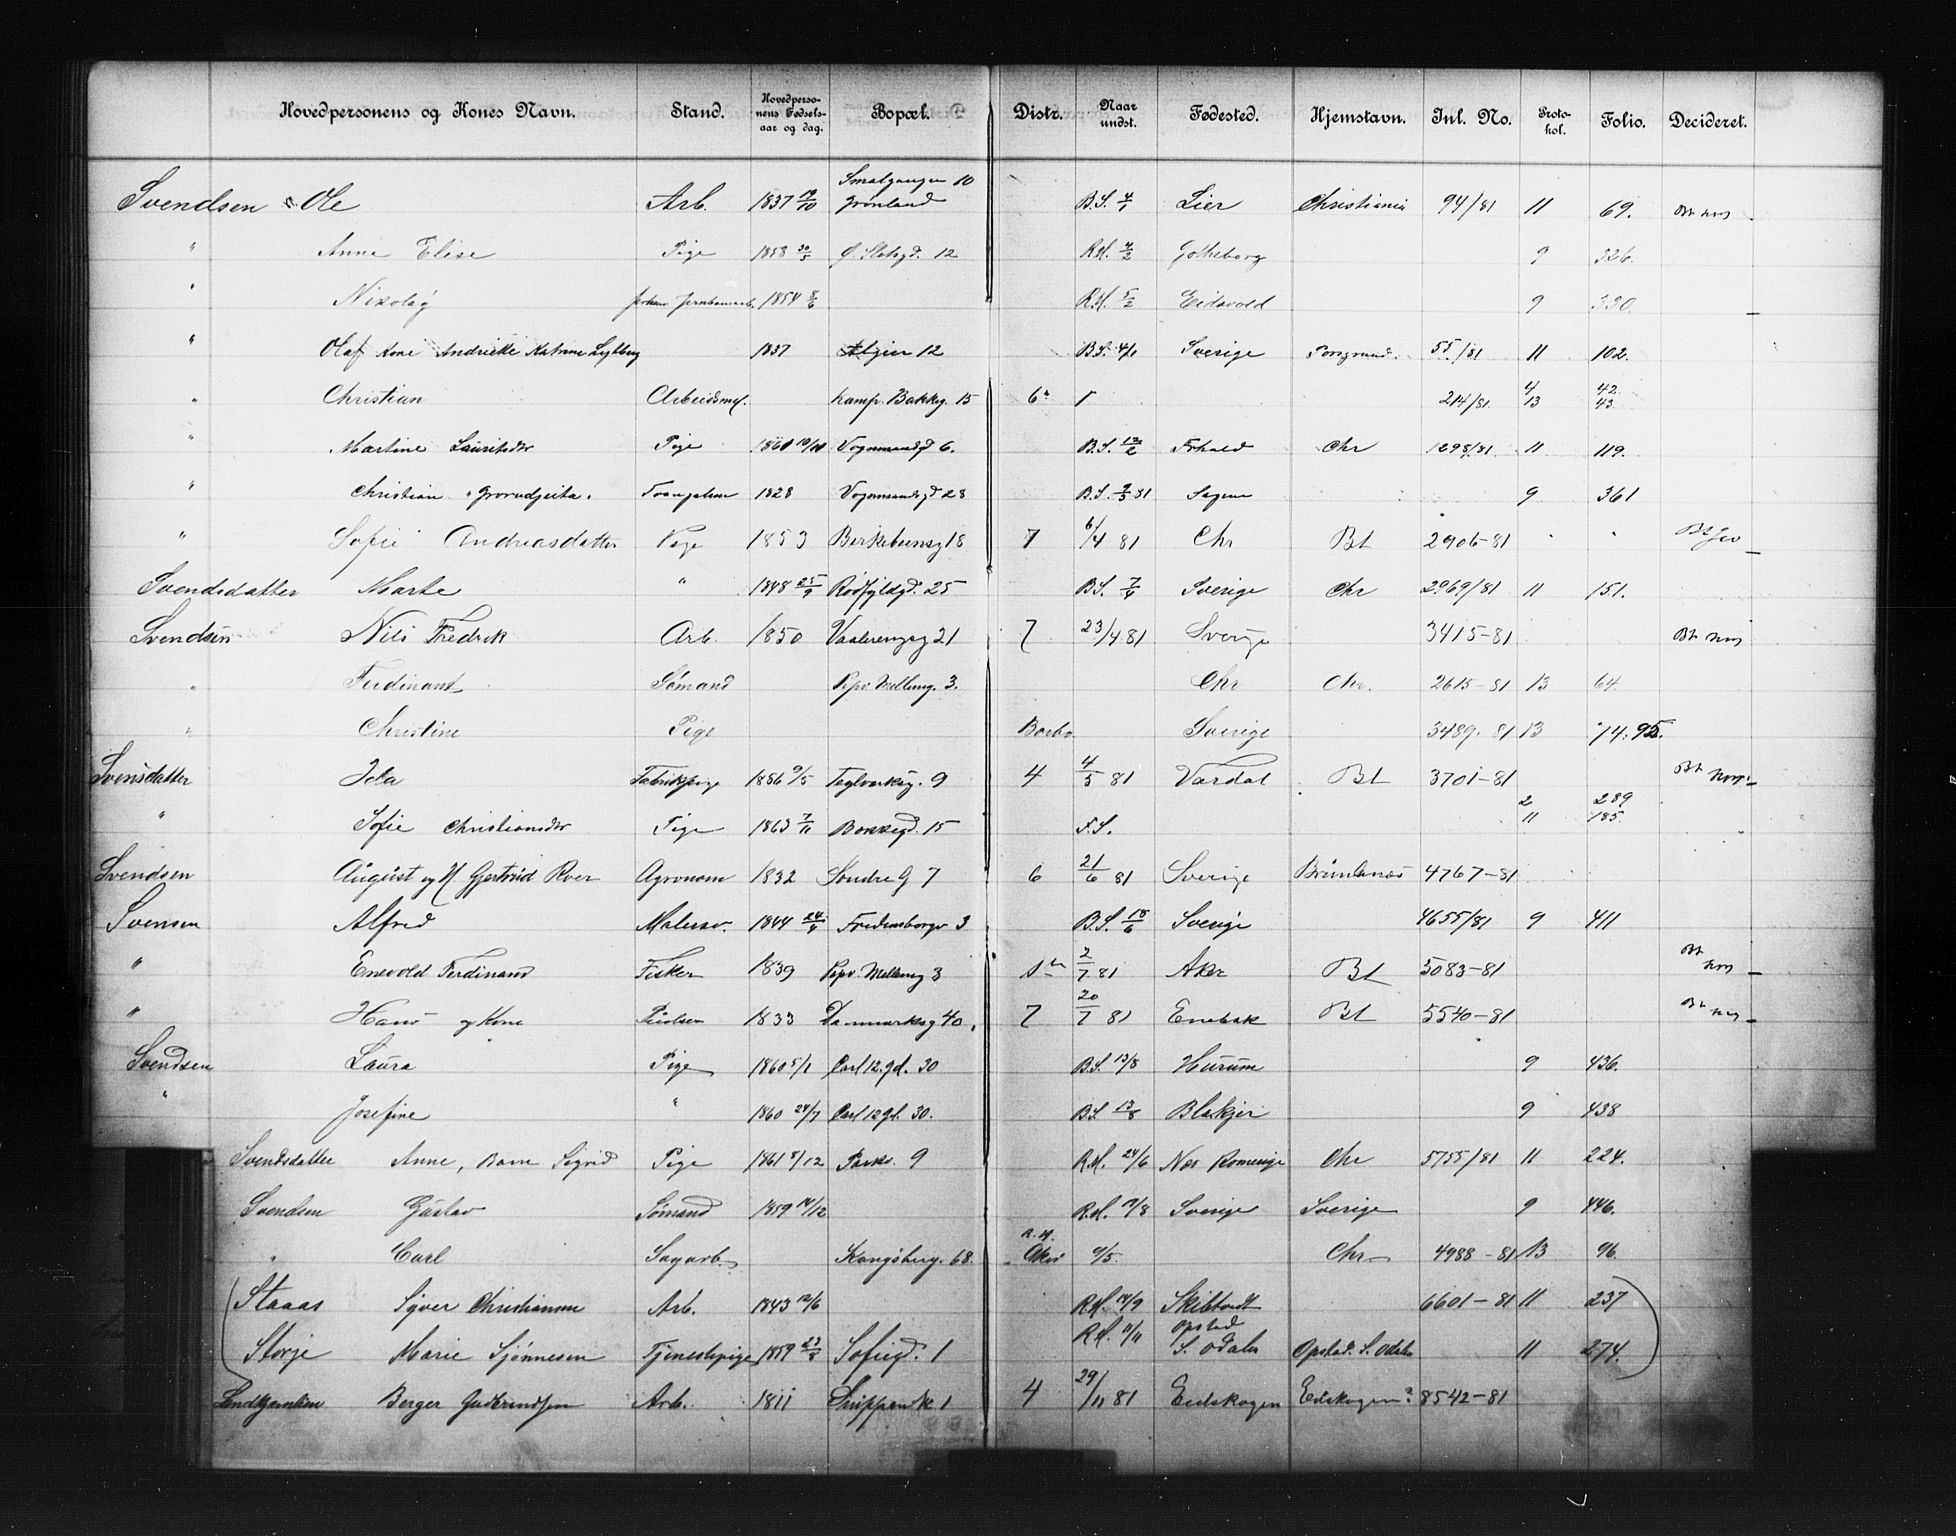 Hovedpersonens og Kones Navn. Stand. Hovedpersonens Fødselsaar og dag. Bopæl. Distr. Naar undst. Fødested. Hjemstavn. Inl. No. Protokol. Folio. Decideret.
Svendsen Ole Arb. 1837 Smalgangen 10 Grønland B.S. 4/1 Lier Christiania 94/81 11 69. Bt
" Anne Elise Pige 1858 30/5 12 R.M. 4/2 Gotheborg 9 526.
" Nikolay 1854 8/6 R.M. 5/2 Eidsvold 9 330.
" Olaf Kone Andrikke Katrine 1837 Algier 12 B.S. 4/1 Sverige Porsgrund. 55/81 11 102.
" Christian Arbeidsm. Kamp. Bakkeg. 15 6 214/81 4 13 42. 43.
" Martine Lauritsdtr Pige Vognmandsg 6. B.S. 12/2 Chr 1298/81 11 119.
" Christian 1828 Vognmandsgd 28 B.S. 9/3 81 Sagene 9 361
" Sofie Andreasdatter Pige 1853 Birkebeinerg 18 7 6/4 81 Chr Bt 2906-81 " " Bt
Svendsdatter Marte " 1848 25/9 Rødfyldgd. 25 B.S. 7/4 Sverige Chr 2969/81 11 151.
Svendsen Nils Fredrik Arb. 1850 Vaalerengsg 21 7 23/4 81 Sverige 3415-81 Bt
" Ferdinant Sømand Pipv. Mellemg. 3. Chr Chr. 2615-81 13 64.
" Christine Pige Sverige 3489-81 13 74. 95.
Svensdatter Ida Fabrikpige 1856 9/5 Teglverksg. 9 4 4/5 81 Vardal Bt 3701-81 Bt
" Sofie Christiansdtr Pige 1863 7/11 Bakkegd. 15 F.S. 2 11 289 185.
Svendsen August og H Gjertrud Agronom 1832 Søndre G 7 6 21/6 81 Sverige Brunlanæs 4767-81
Svensen Alfred Malersv. 1844 24/9 Fredensborgv 3 B.S. 18/6 Sverige 4655/81 9 411
" Enevold Ferdinand Fisker 1839 Pipv. Mellemg 3 2/7 81 Aker Bt 5083-81 Bt
" Hans og Kone 1833 Danmarksg 40. 7 20/7 81 Enebak Bt 5540-81 Bt
Svendsen Laura Pige 1860 5/1 Carl 12. gd. 30 B.S. 13/8 Hurum 9 436.
" Josefine " 1860 24/7 Carl 12 gd. 30. B.S. 13/8 Blakjer 9 438
Svendsdatter Anne, Barn Sigrid Pige 1861 8/12 Parkv. 9 R.M. 24/6 Nes Romerige Chr 5755/81 11 224.
Svendsen Gustav Sømand 1859 14/12 R.M. Sverige Sverige 9 446.
" Carl Sagarb. Kongsberg. 68. R.M. Aker 9/5. Chr 4988-81 13 96.
Staaas Syver Christiansen Arb. 1843 12/6 R.M. 14/9 Skibtvedt 6601-81 11 237
Storje Marie Sjønnesen Tjenestepige 1859 Sofiegd. 1 R.M. 11/11 Opstad S. Odalen Opstad. S. Odalen 11 274.
Berger Gulbrandsen Arb. 1811 1 4 29/11 81 Eidskogen Eidskogen? 8542-81